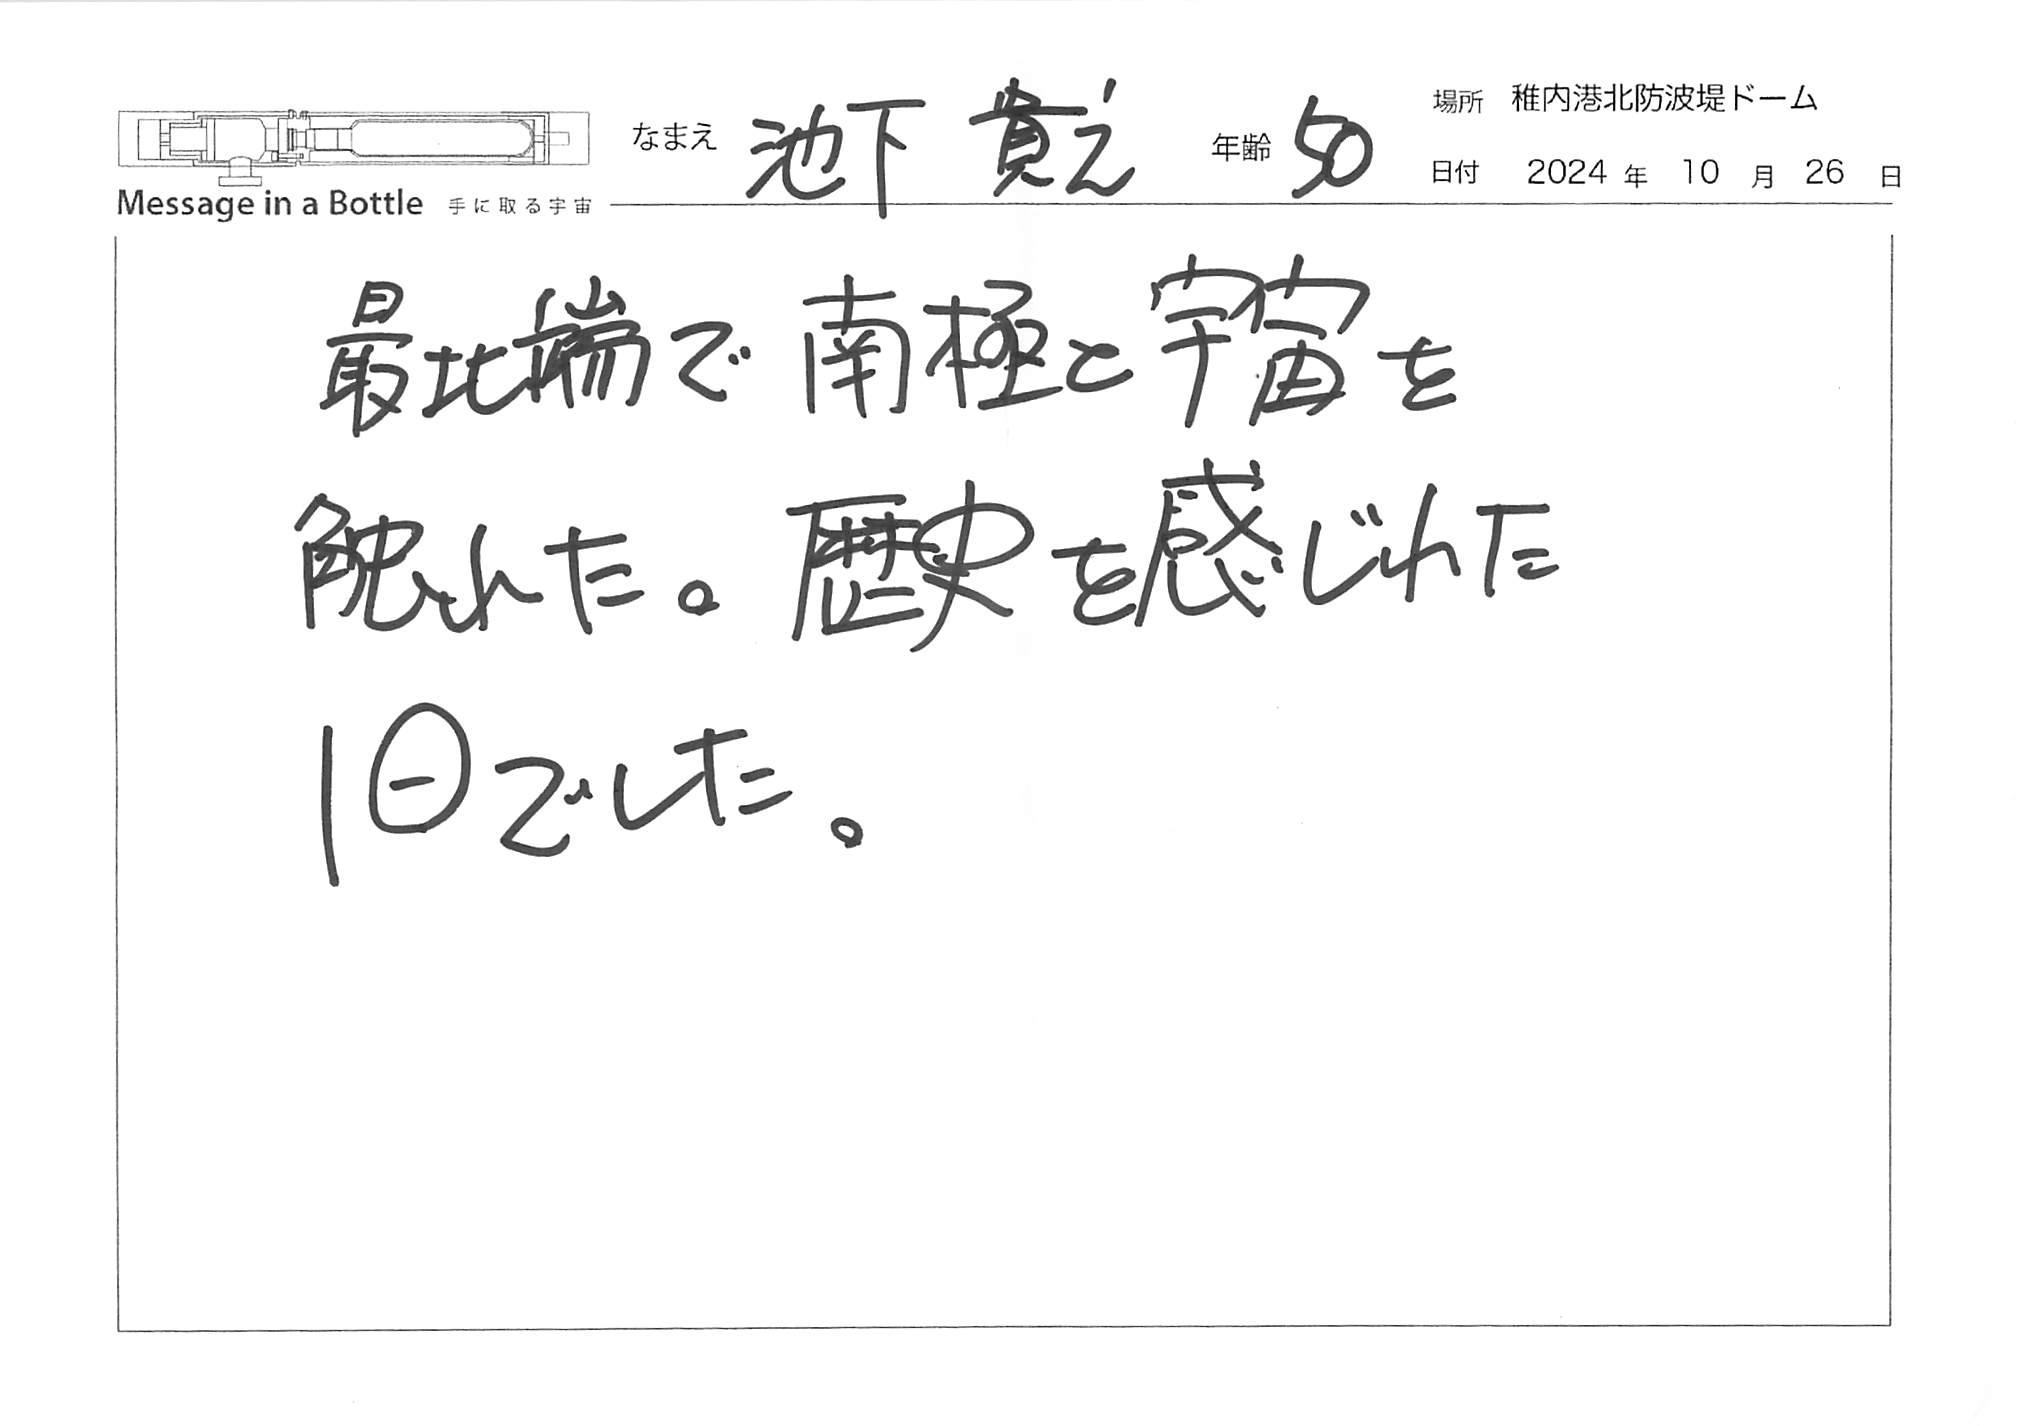 場所 稚内港北防波堤ドーム
なまえ 池下 貴え 年齢 50
日付 2024 年 10 月 26 日
Message in a Bottle 手に取る宇宙
最北端で南極と宇宙を
触れた。歴史を感じれた
1日でした。